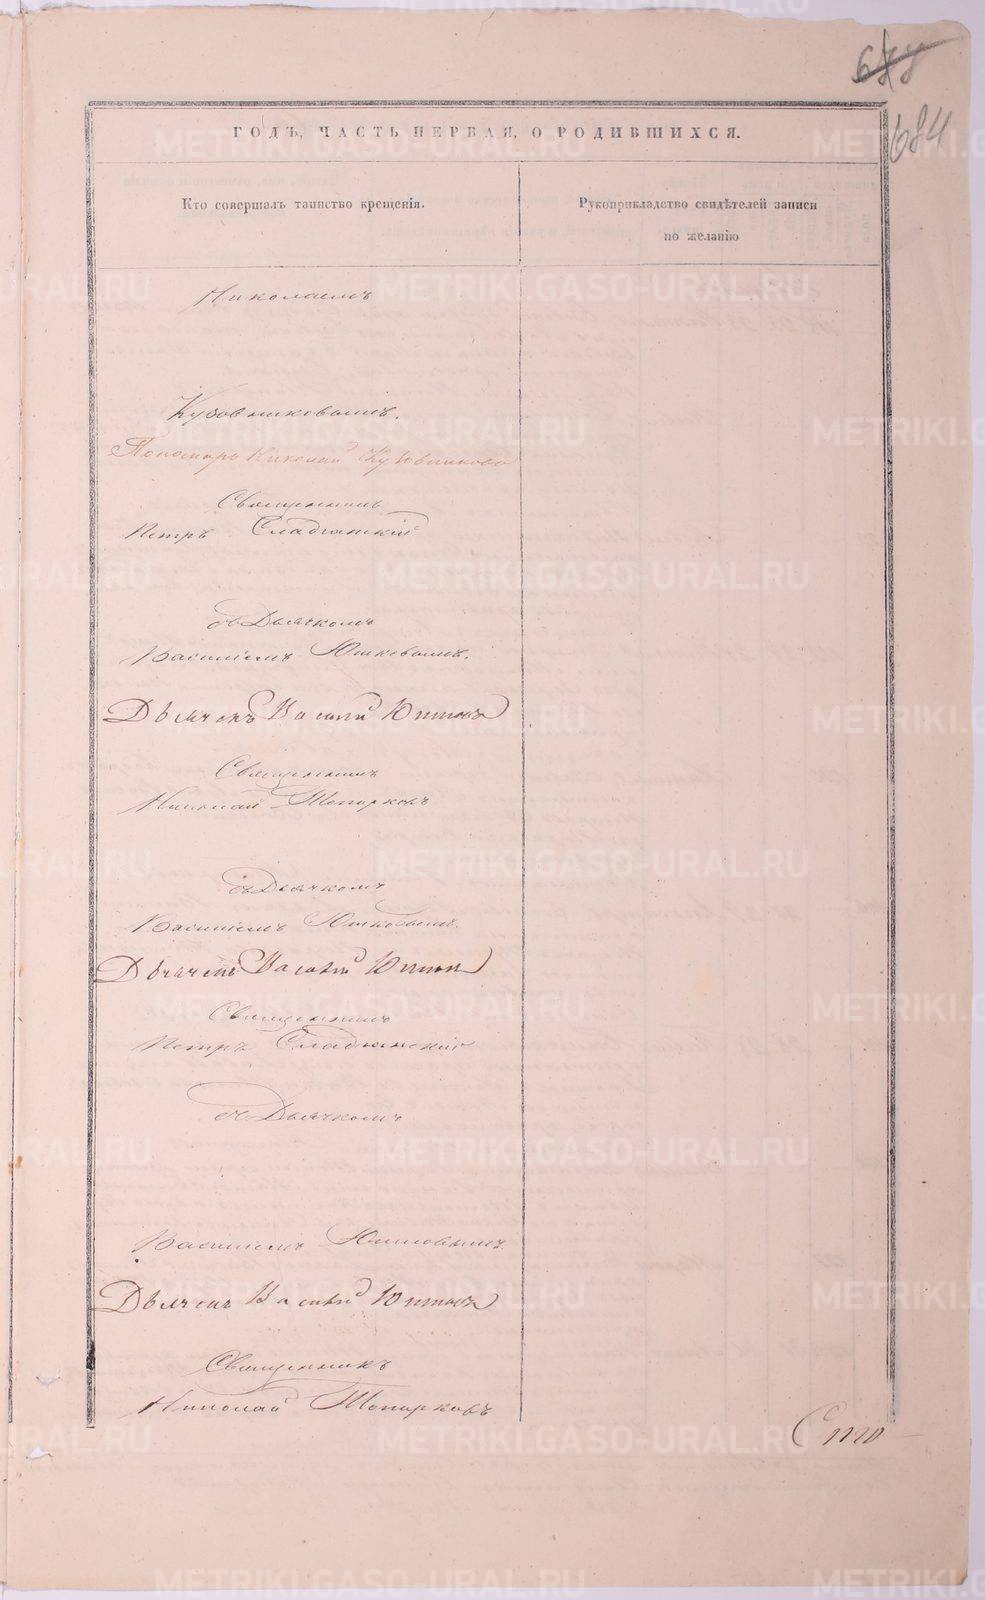 678
684
ГОДЪ, ЧАСТЬ ПЕРВАЯ, О РОДИВШИХСЯ.
Кто совершалъ таинство крещенія.
Рукоприкладство свидѣтелей записи
по желанію
Николаемъ
Кузовниковымъ.
Пономарь Николай Кузовниковъ
Священникъ
Петръ Сладчанскій
съ Дьячкомъ
Василіемъ Юшковымъ.
Дьячекъ Васілій Юшковъ
Священникъ
Николай Топорковъ
съ Дьячкомъ
Василіемъ Юшковымъ.
Дьячекъ Васілій Юшковъ
Священникъ
Петръ Сладчанскій
съ Дьячкомъ
Василіемъ Юшковымъ.
Дьячекъ Васілій Юшковъ
Священникъ
Николай Топорковъ
METRIKI.GASO-URAL.RU